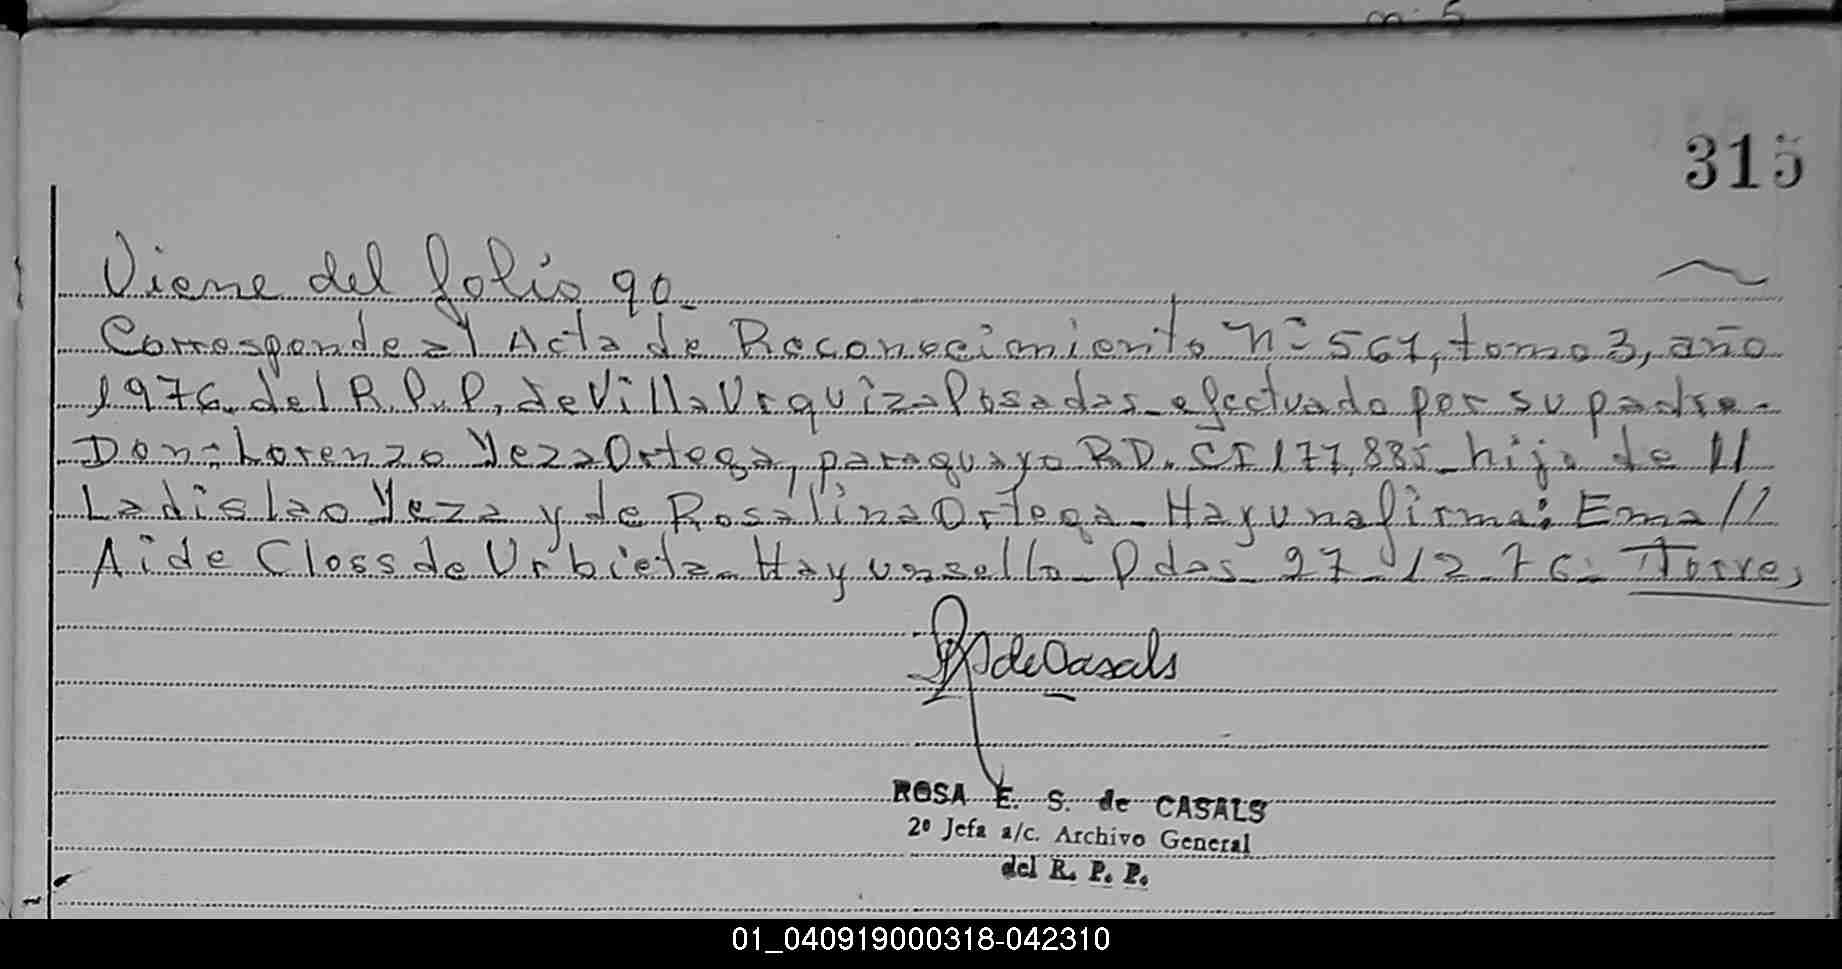 315
Viene del folio 90_
Corresponde al Acta de Reconocimiento nº 561, tomo 3, año
1976. del R.P.P. de Villa Urquiza Posadas_ efectuado por su padre_
Don: Lorenzo Yeza Ortega, paraguayo R.D. CI 177.885_ hijo de //
Ladislao Yeza y de Rosalina Ortega_ Hay una firma: Ema //
Aide Closs de Urbieta_ Hay un sello_ Pdas_ 27_12_76_ Torre,
de Casals
ROSA E. S. de CASALS
2º Jefa a/c. Archivo General
del R. P. P.
01_040919000318-042310